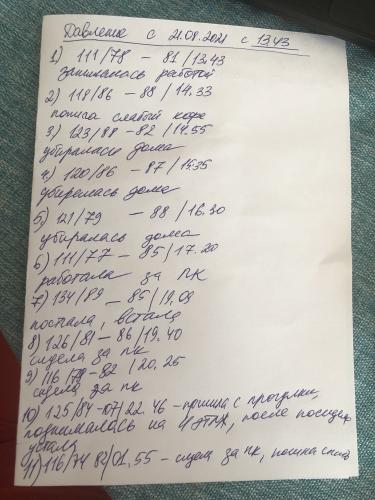 Давление с 21.08.2021 с 13.43
1) 111/78 - 81/13.43
занималась работой
2) 118/86 - 88/14.33
попила слабый кофе
3) 123/88 - 82/14.55
убиралась дома
4) 120/86 - 87/15.35
убиралась дома
5) 121/79 - 88/16.30
убиралась дома
6) 111/77 - 85/17.20
работала за ПК
7) 134/89 - 85/19.09
поспала, встала
8) 126/81 - 86/19.40
сидела за пк
9) 116/79 - 82/20.25
сидела за пк
10) 125/84 - 107/22.46 - пришла с прогулки,
поднималась на 4 этаж, после посидела
устала
11) 116/74 82/01.55 - сидела за пк, пошла спать